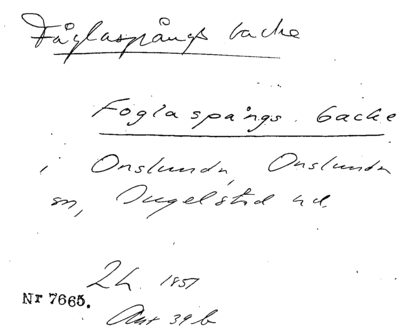 Fåglaspångs backe
Foglaspångs backe
i Onslunda, Onslunda
sn, Ingelstad hd.
Lh. 1857
Nr 7665.
Akt 39 b